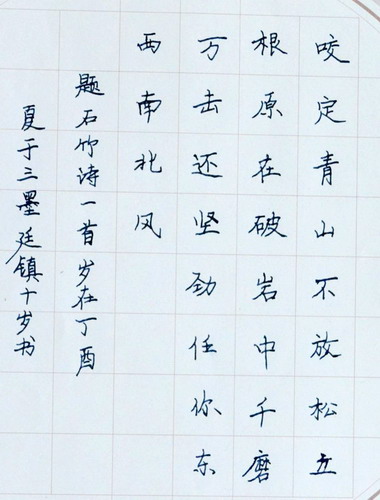 咬定青山不放松立
根原在破岩中千磨
万击还坚劲任你东
西南北风
题石竹诗一首岁在丁酉
夏于三墨廷镇十岁书